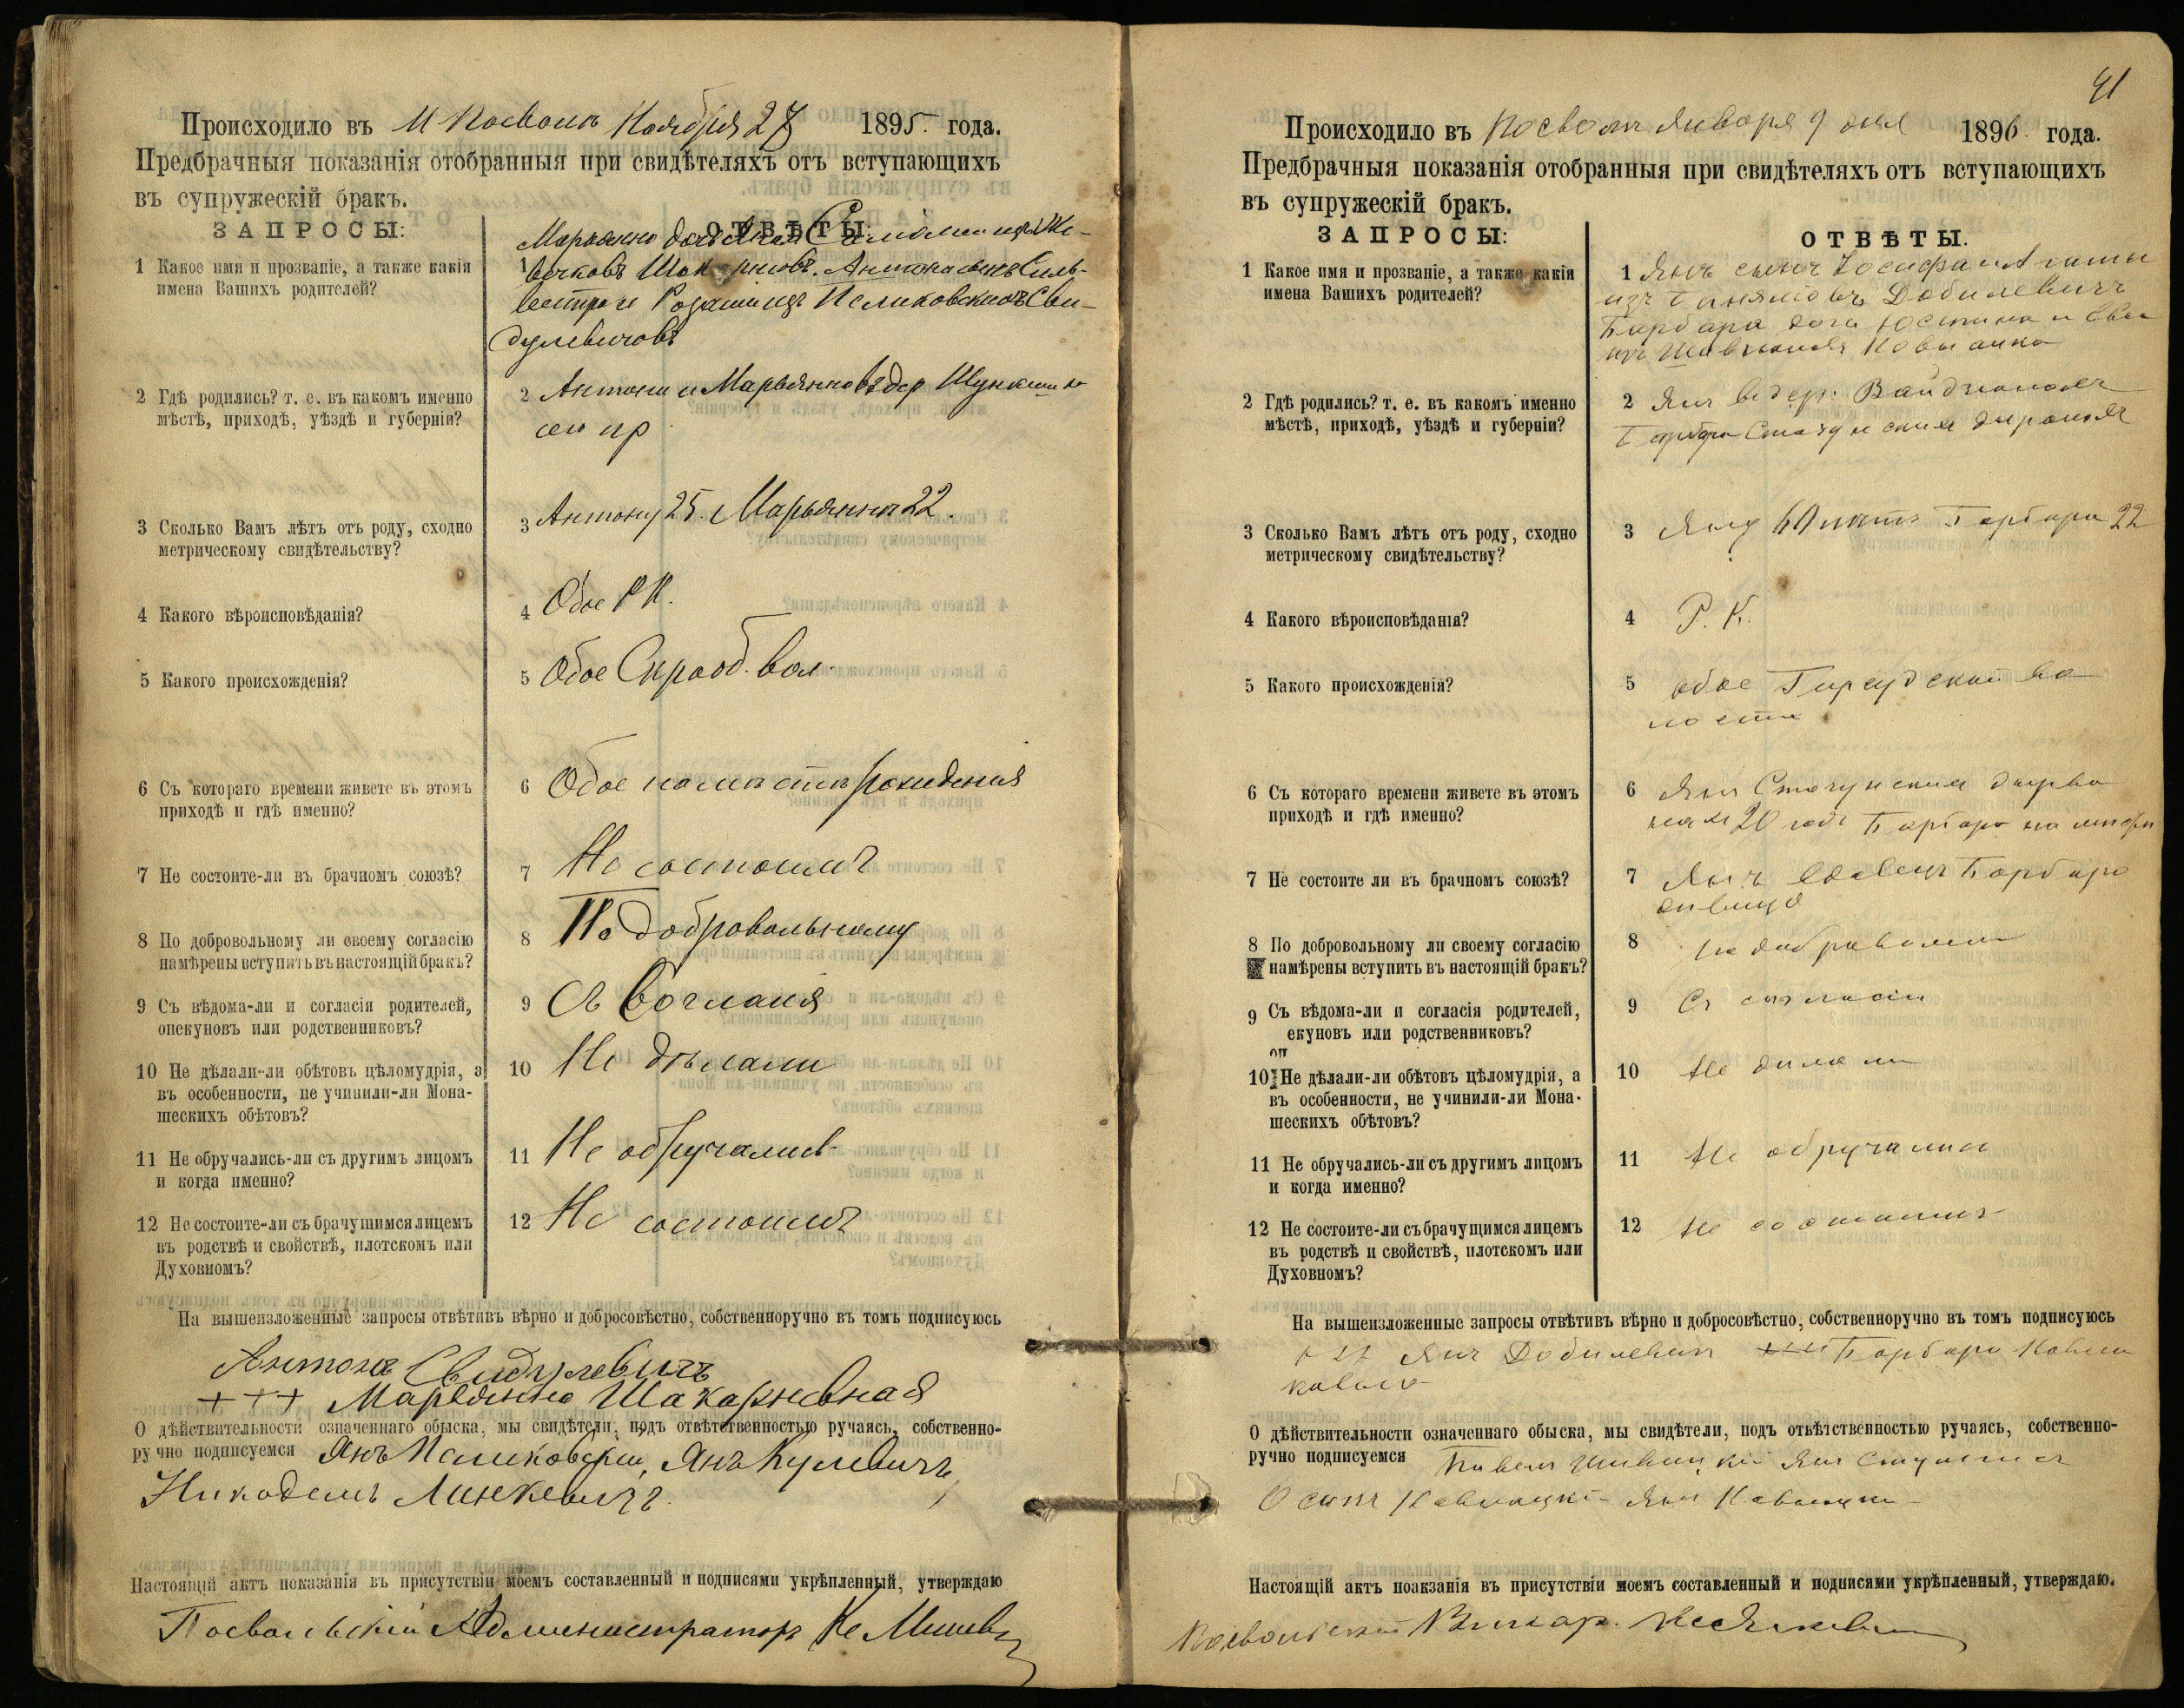 Происходило въ М Посволь Ноября 27 1895. года.
Предбрачныя показанія отобранныя при свидѣтеляхъ отъ вступающихъ
въ супружескій бракъ.
ЗАПРОСЫ:
ОТВѢТЫ.
1 Какое имя и прозваніе, а также какія
имена Вашихъ родителей?
1
дулевичовъ
2 Гдѣ родились? т. е. въ какомъ именно
мѣстѣ, приходѣ, уѣздѣ и губерніи?
2 Антони и Марьянна въ дер
сего пр
3 Сколько Вамъ лѣтъ отъ роду, сходно
метрическому свидѣтельству?
3 Антону 25. Марьяннѣ 22.
4 Какого вѣроисповѣданія?
4 Обое Р К.
5 Какого происхожденія?
5 Обое вол.
6 Съ котораго времени живете въ этомъ
приходѣ и гдѣ именно?
6 Обое на мѣстѣ рожденія
7 Не состоите-ли въ брачномъ союзѣ?
7 Не состоимъ
8 По добровольному ли своему согласію
намѣрены вступить въ настоящій бракъ?
8 По добровольному
9 Съ вѣдома-ли и согласія родителей,
опекуновъ или родственниковъ?
9 Съ
10 Не дѣлали-ли обѣтовъ цѣломудрія, а
въ особенности, не учинили-ли Мона-
шескихъ обѣтовъ?
10 Не дѣлали
11 Не обручались-ли съ другимъ лицомъ
и когда именно?
11 Не обручались
12 Не состоите-ли съ брачущимся лицемъ
въ родствѣ и свойствѣ, плотскомъ или
Духовномъ?
12 Не состоимъ
На вышеизложенные запросы отвѣтивъ вѣрно и добросовѣстно, собственноручно въ томъ подписуюсь
Антонъ Свидулевичъ
+ + + Марьянна Шакарневная
О дѣйствительности означеннаго обыска, мы свидѣтели, подъ отвѣтственностью ручаясь, собственно-
ручно подписуемся Янъ Янъ Кулевичъ,
Никодемъ Линкевичъ.
Настоящій актъ показанія въ присутствіи моемъ составленный и подписями укрѣпленный, утверждаю
Посвольскій Администраторъ
41
Происходило въ Посволь Января 9 дня 1896 года.
Предбрачныя показанія отобранныя при свидѣтеляхъ отъ вступающихъ
въ супружескій бракъ.
ЗАПРОСЫ:
ОТВѢТЫ.
1 Какое имя и прозваніе, а также какія
имена Вашихъ родителей?
1 Янъ сынъ Іосифа и Агаты
изъ Добилевичъ
Барбара дочь Юстина и Евы
изъ
2 Гдѣ родились? т. е. въ какомъ именно
мѣстѣ, приходѣ, уѣздѣ и губерніи?
2 Янъ въ дер.
Барбара
3 Сколько Вамъ лѣтъ отъ роду, сходно
метрическому свидѣтельству?
3 Яну лѣтъ Барбара 22
4 Какого вѣроисповѣданія?
4 Р. К.
5 Какого происхожденія?
5 обое во
лости
6 Съ котораго времени живете въ этомъ
приходѣ и гдѣ именно?
6 Янъ
20 годъ Барбара на
7 Не состоите ли въ брачномъ союзѣ?
7 Янъ вдовецъ Барбара
дѣвица
8 По добровольному ли своему согласію
намѣрены вступить въ настоящій бракъ?
8 по
9 Съ вѣдома-ли и согласія родителей,
екуновъ или родственниковъ?
оп
9 Съ согласія
10 Не дѣлали-ли обѣтовъ цѣломудрія, а
въ особенности, не учинили-ли Мона-
шескихъ обѣтовъ?
10 Не дилали
11 Не обручались-ли съ другимъ лицомъ
и когда именно?
11 Не обручались
12 Не состоите-ли съ брачущимся лицемъ
въ родствѣ и свойствѣ, плотскомъ или
Духовномъ?
12 Не состоимъ
На вышеизложенные запросы отвѣтивъ вѣрно и добросовѣстно, собственноручно въ томъ подписуюсь
Янъ Добилевичъ +++ Барбара
О дѣйствительности означеннаго обыска, мы свидѣтели, подъ отвѣтственностью ручаясь, собственно-
ручно подписуемся Павелъ Янъ
Осипъ Янъ
Настоящій актъ поакзанія въ присутствіи моемъ составленный и подписями укрѣпленный, утверждаю.
Посвольскій Викар.